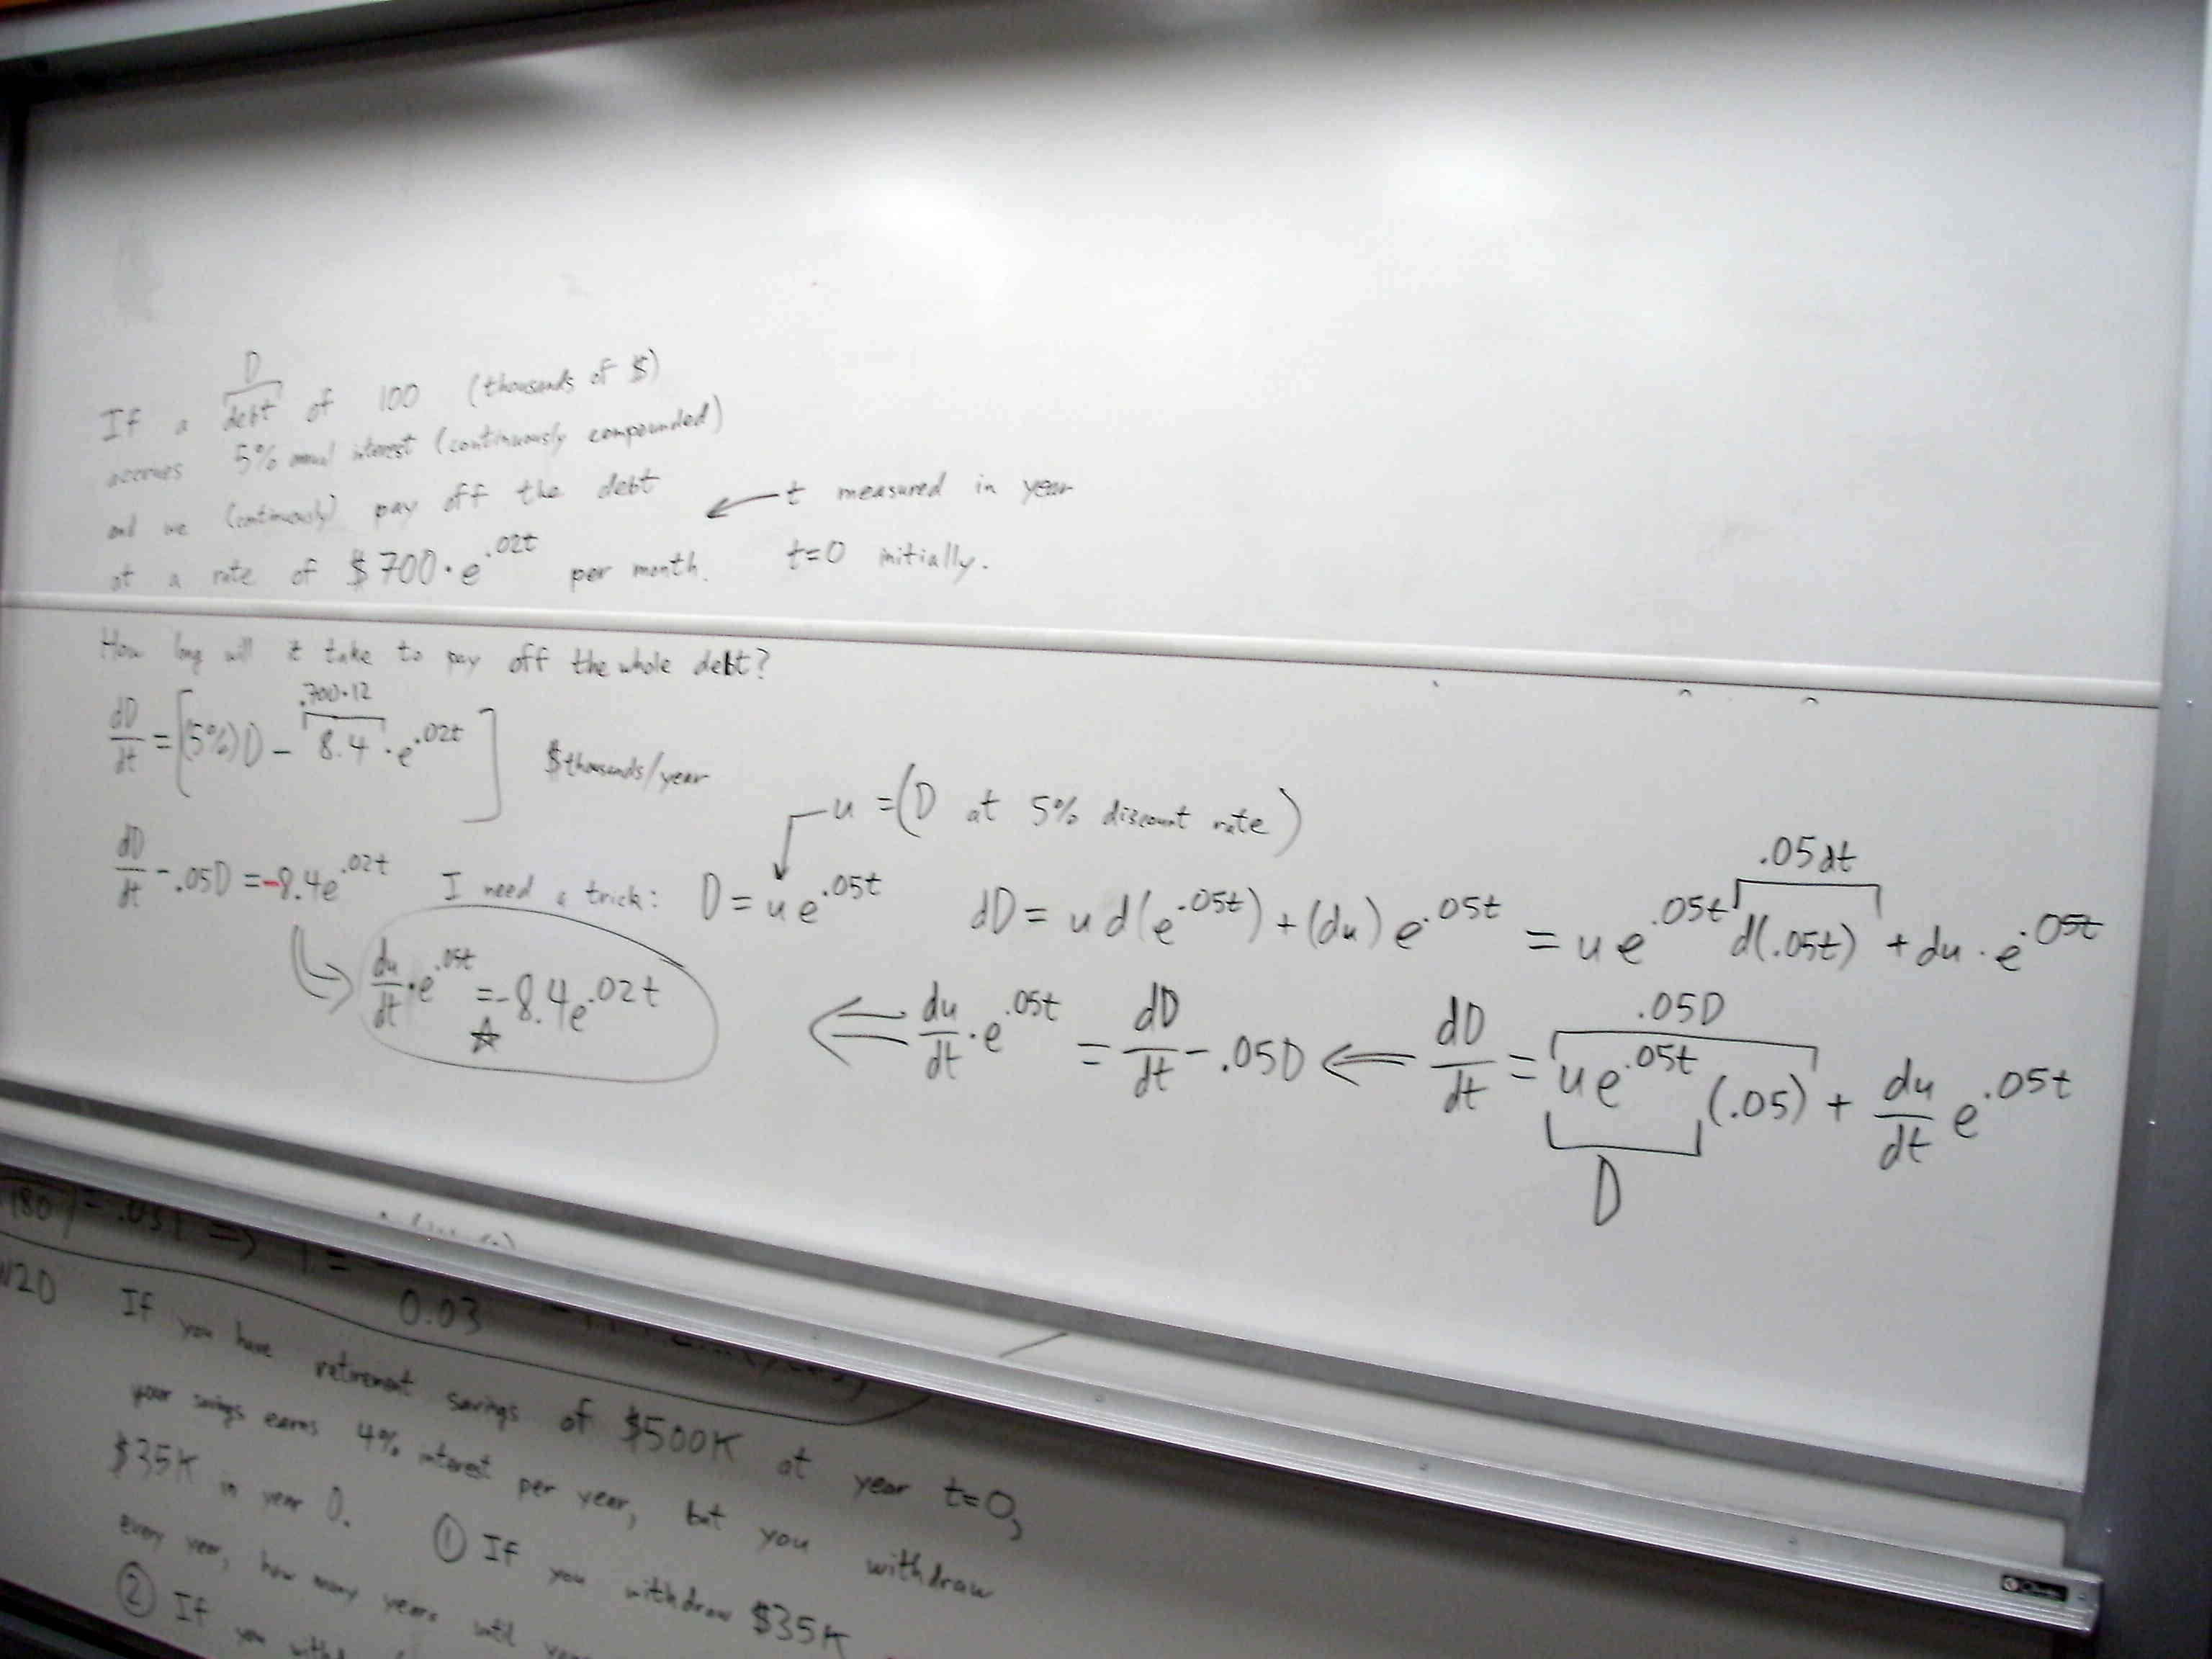 D
If a debt of 100 (thousands of $)
accrues 5% annual interest (continuously compounded)
and we (continuously) pay off the debt
at a rate of $700·e^.02t per month.
← t measured in year
t=0 initially.
How long will it take to pay off the whole debt?
.700·12
dD/dt = [(5%)D - 8.4·e^.02t] $thousands/year
u = (D at 5% discount rate)
dD/dt - .05D = -8.4e^.02t
I need a trick: D = ue^.05t
.05dt
dD = u d(e^.05t) + (du)e^.05t = ue^.05t d(.05t) + du·e^.05t
du/dt·e^.05t = -8.4e^.02t
☆
⇐ du/dt·e^.05t = dD/dt - .05D ⇐ dD/dt = ue^.05t(.05) + du/dt e^.05t
.05D
D
180) = .03T ⇒ T =
0.03
If you have retirement savings of $500K at year t=0,
your savings earns 4% interest per year, but you withdraw
$35K in year 0. ① If you withdraw $35K
every year, how many years until
② If you